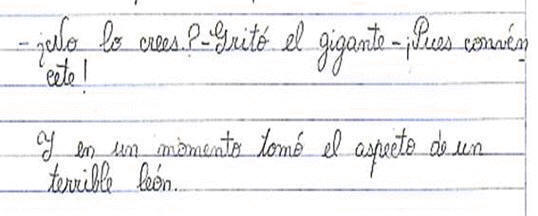 -¡No lo crees?-Gritó el gigante-¡Pues convén
cete!
Y en un momento tomó el aspecto de un
terrible león.